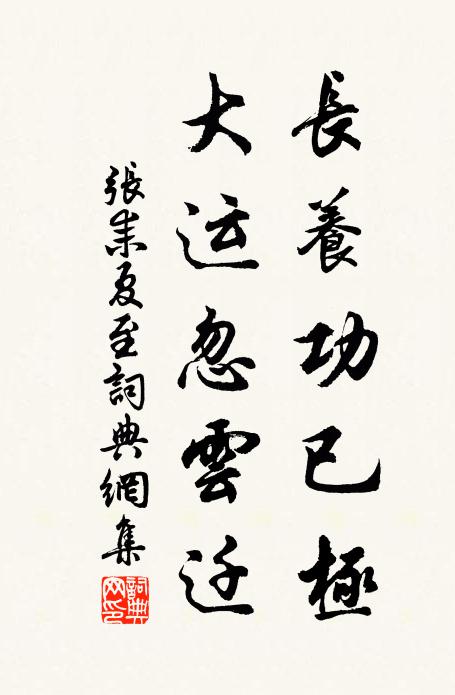 長養功已極
大运忽雲迁
張耒夏至詞典網集
詞典网印